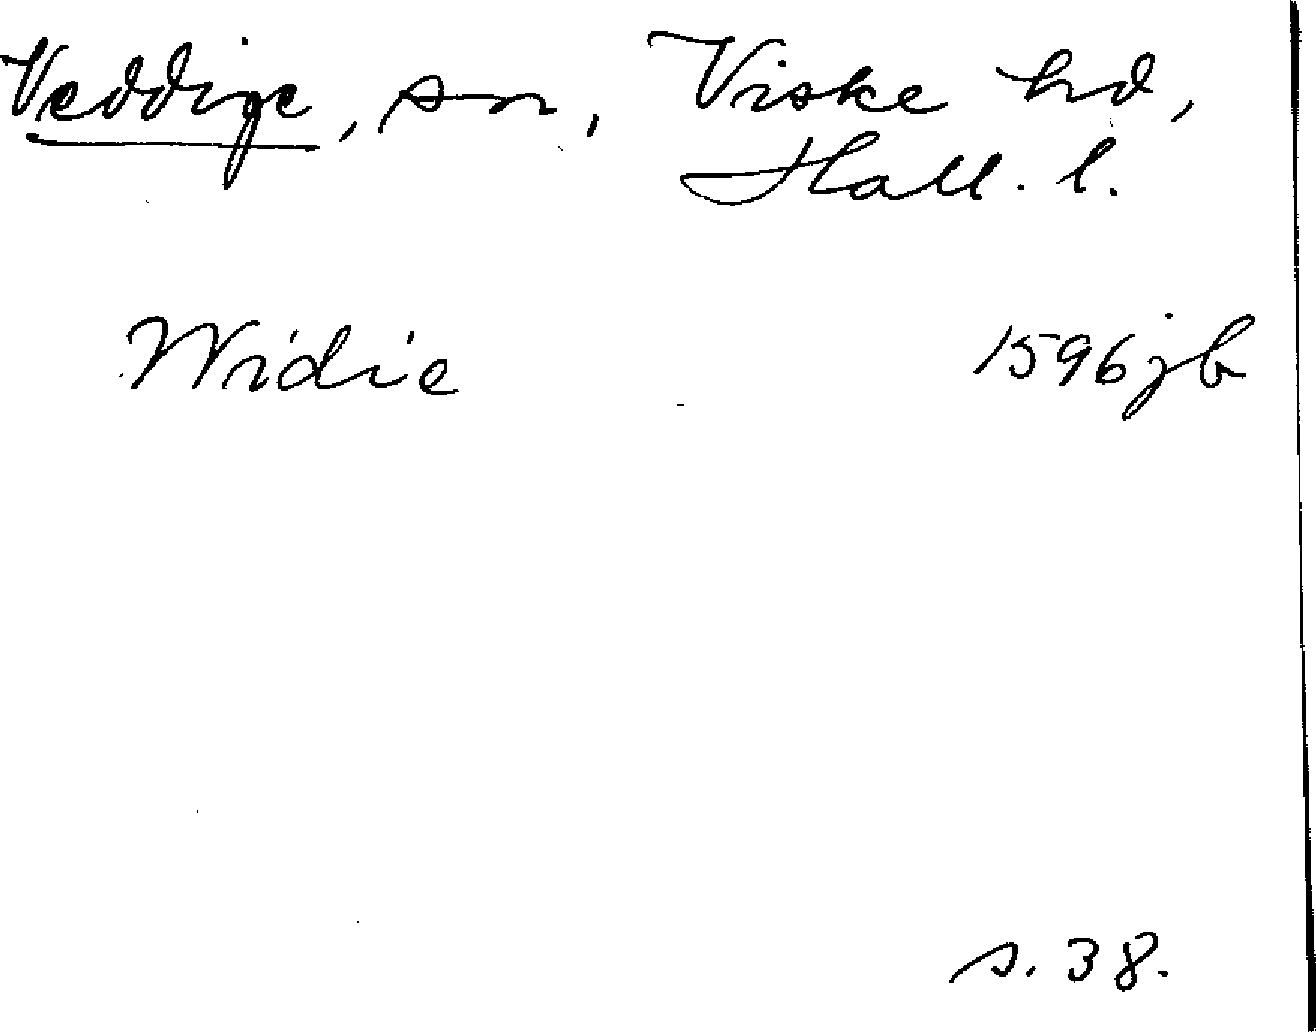 Veddige, sn, Viske hd,
Hall. l.
Widie 1596 jb
s. 38.